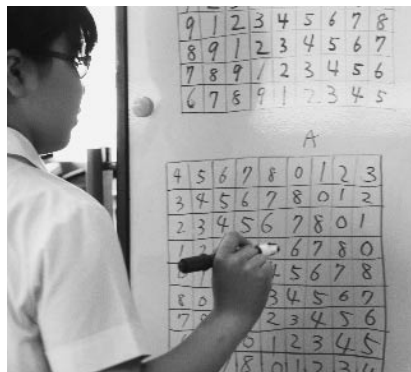 9 1 2 3 4 5 6 7 8
8 9 1 2 3 4 5 6 7
7 8 9 1 2 3 4 5 6
6 7 8 9 1 2 3 4 5
A
4 5 6 7 8 0 1 2 3
3 4 5 6 7 8 0 1 2
2 3 4 5 6 7 8 0 1
1 6 7 8 0
4 5 6 7 8
8 0 3 4 5 6 7
7 2 3 4 5 6
0 1 2 3 4 5
8 0 1 2 3